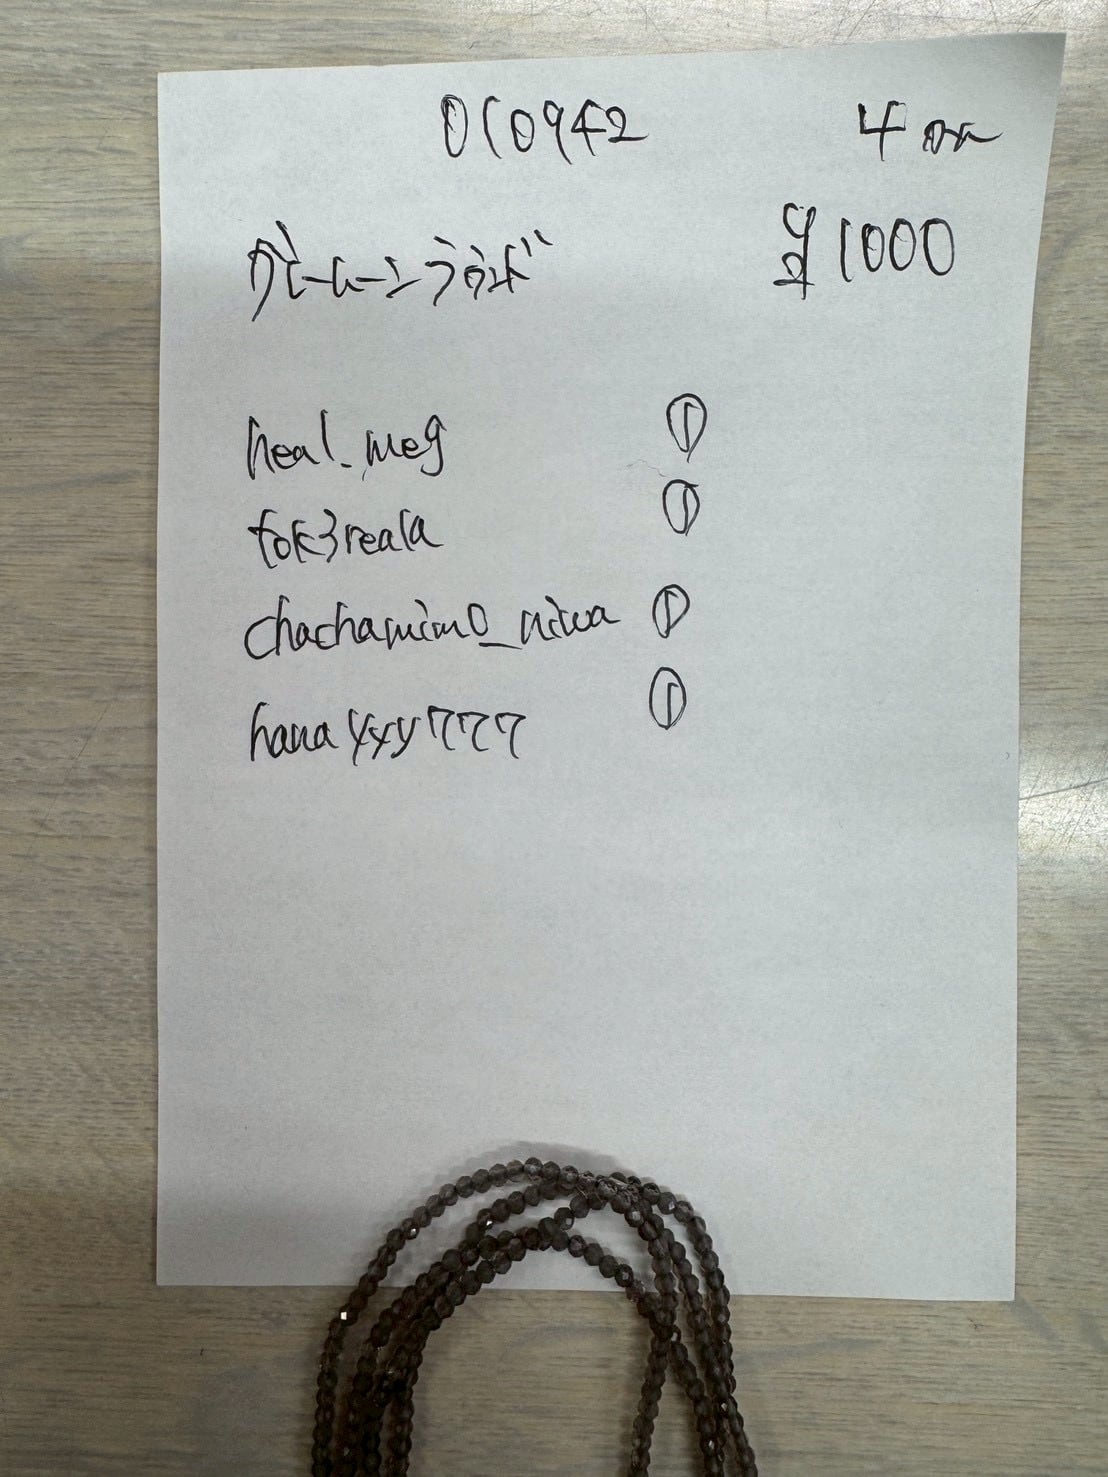 010942 4mm
グレームーンラウンド ¥1000
heal_meg ①
tok3reala ①
chachamimo_niwa ①
hanayyy777 ①